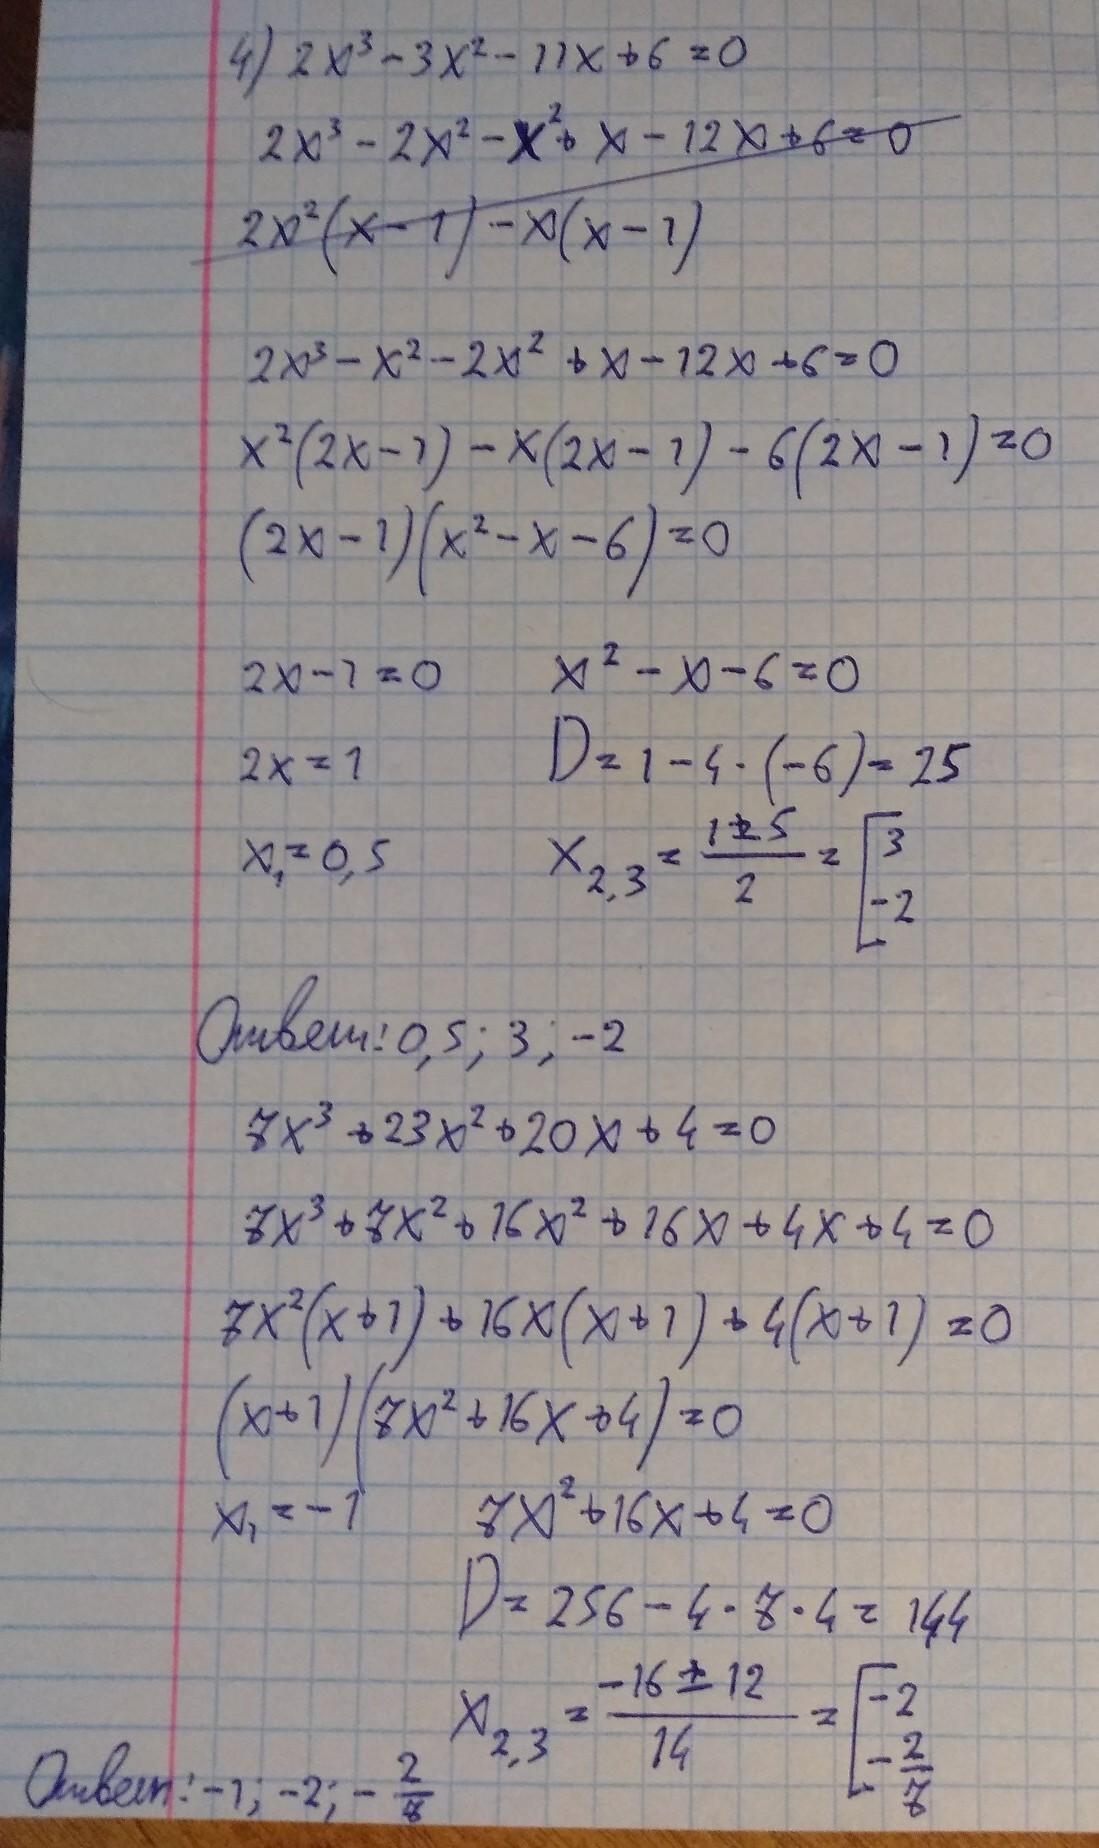 4) 2x³ - 3x² - 11x + 6 = 0
2x³ - 2x² - x² + x - 12x + 6 = 0
2x²(x - 1) - x(x - 1)
2x³ - x² - 2x² + x - 12x + 6 = 0
x²(2x - 1) - x(2x - 1) - 6(2x - 1) = 0
(2x - 1)(x² - x - 6) = 0
2x - 1 = 0 x² - x - 6 = 0
2x = 1 D = 1 - 4 · (-6) = 25
x₁ = 0,5 x₂,₃ = (1 ± 5)/2 = [3
-2
Ответ: 0,5; 3; -2
7x³ + 23x² + 20x + 4 = 0
7x³ + 7x² + 16x² + 16x + 4x + 4 = 0
7x²(x + 1) + 16x(x + 1) + 4(x + 1) = 0
(x + 1)(7x² + 16x + 4) = 0
x₁ = -1 7x² + 16x + 4 = 0
D = 256 - 4 · 7 · 4 = 144
x₂,₃ = (-16 ± 12)/14 = [-2
-2/7
Ответ: -1; -2; -2/7